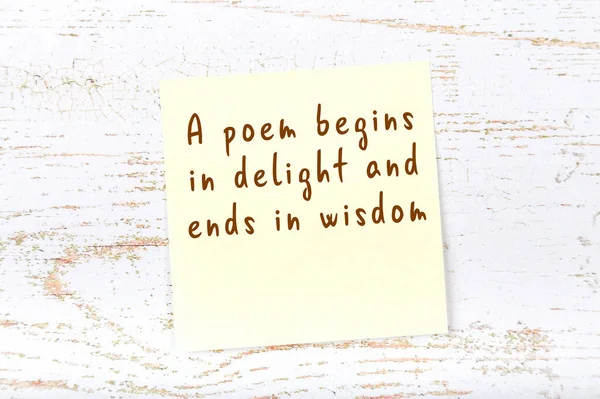 A poem begins
in delight and
ends in wisdom